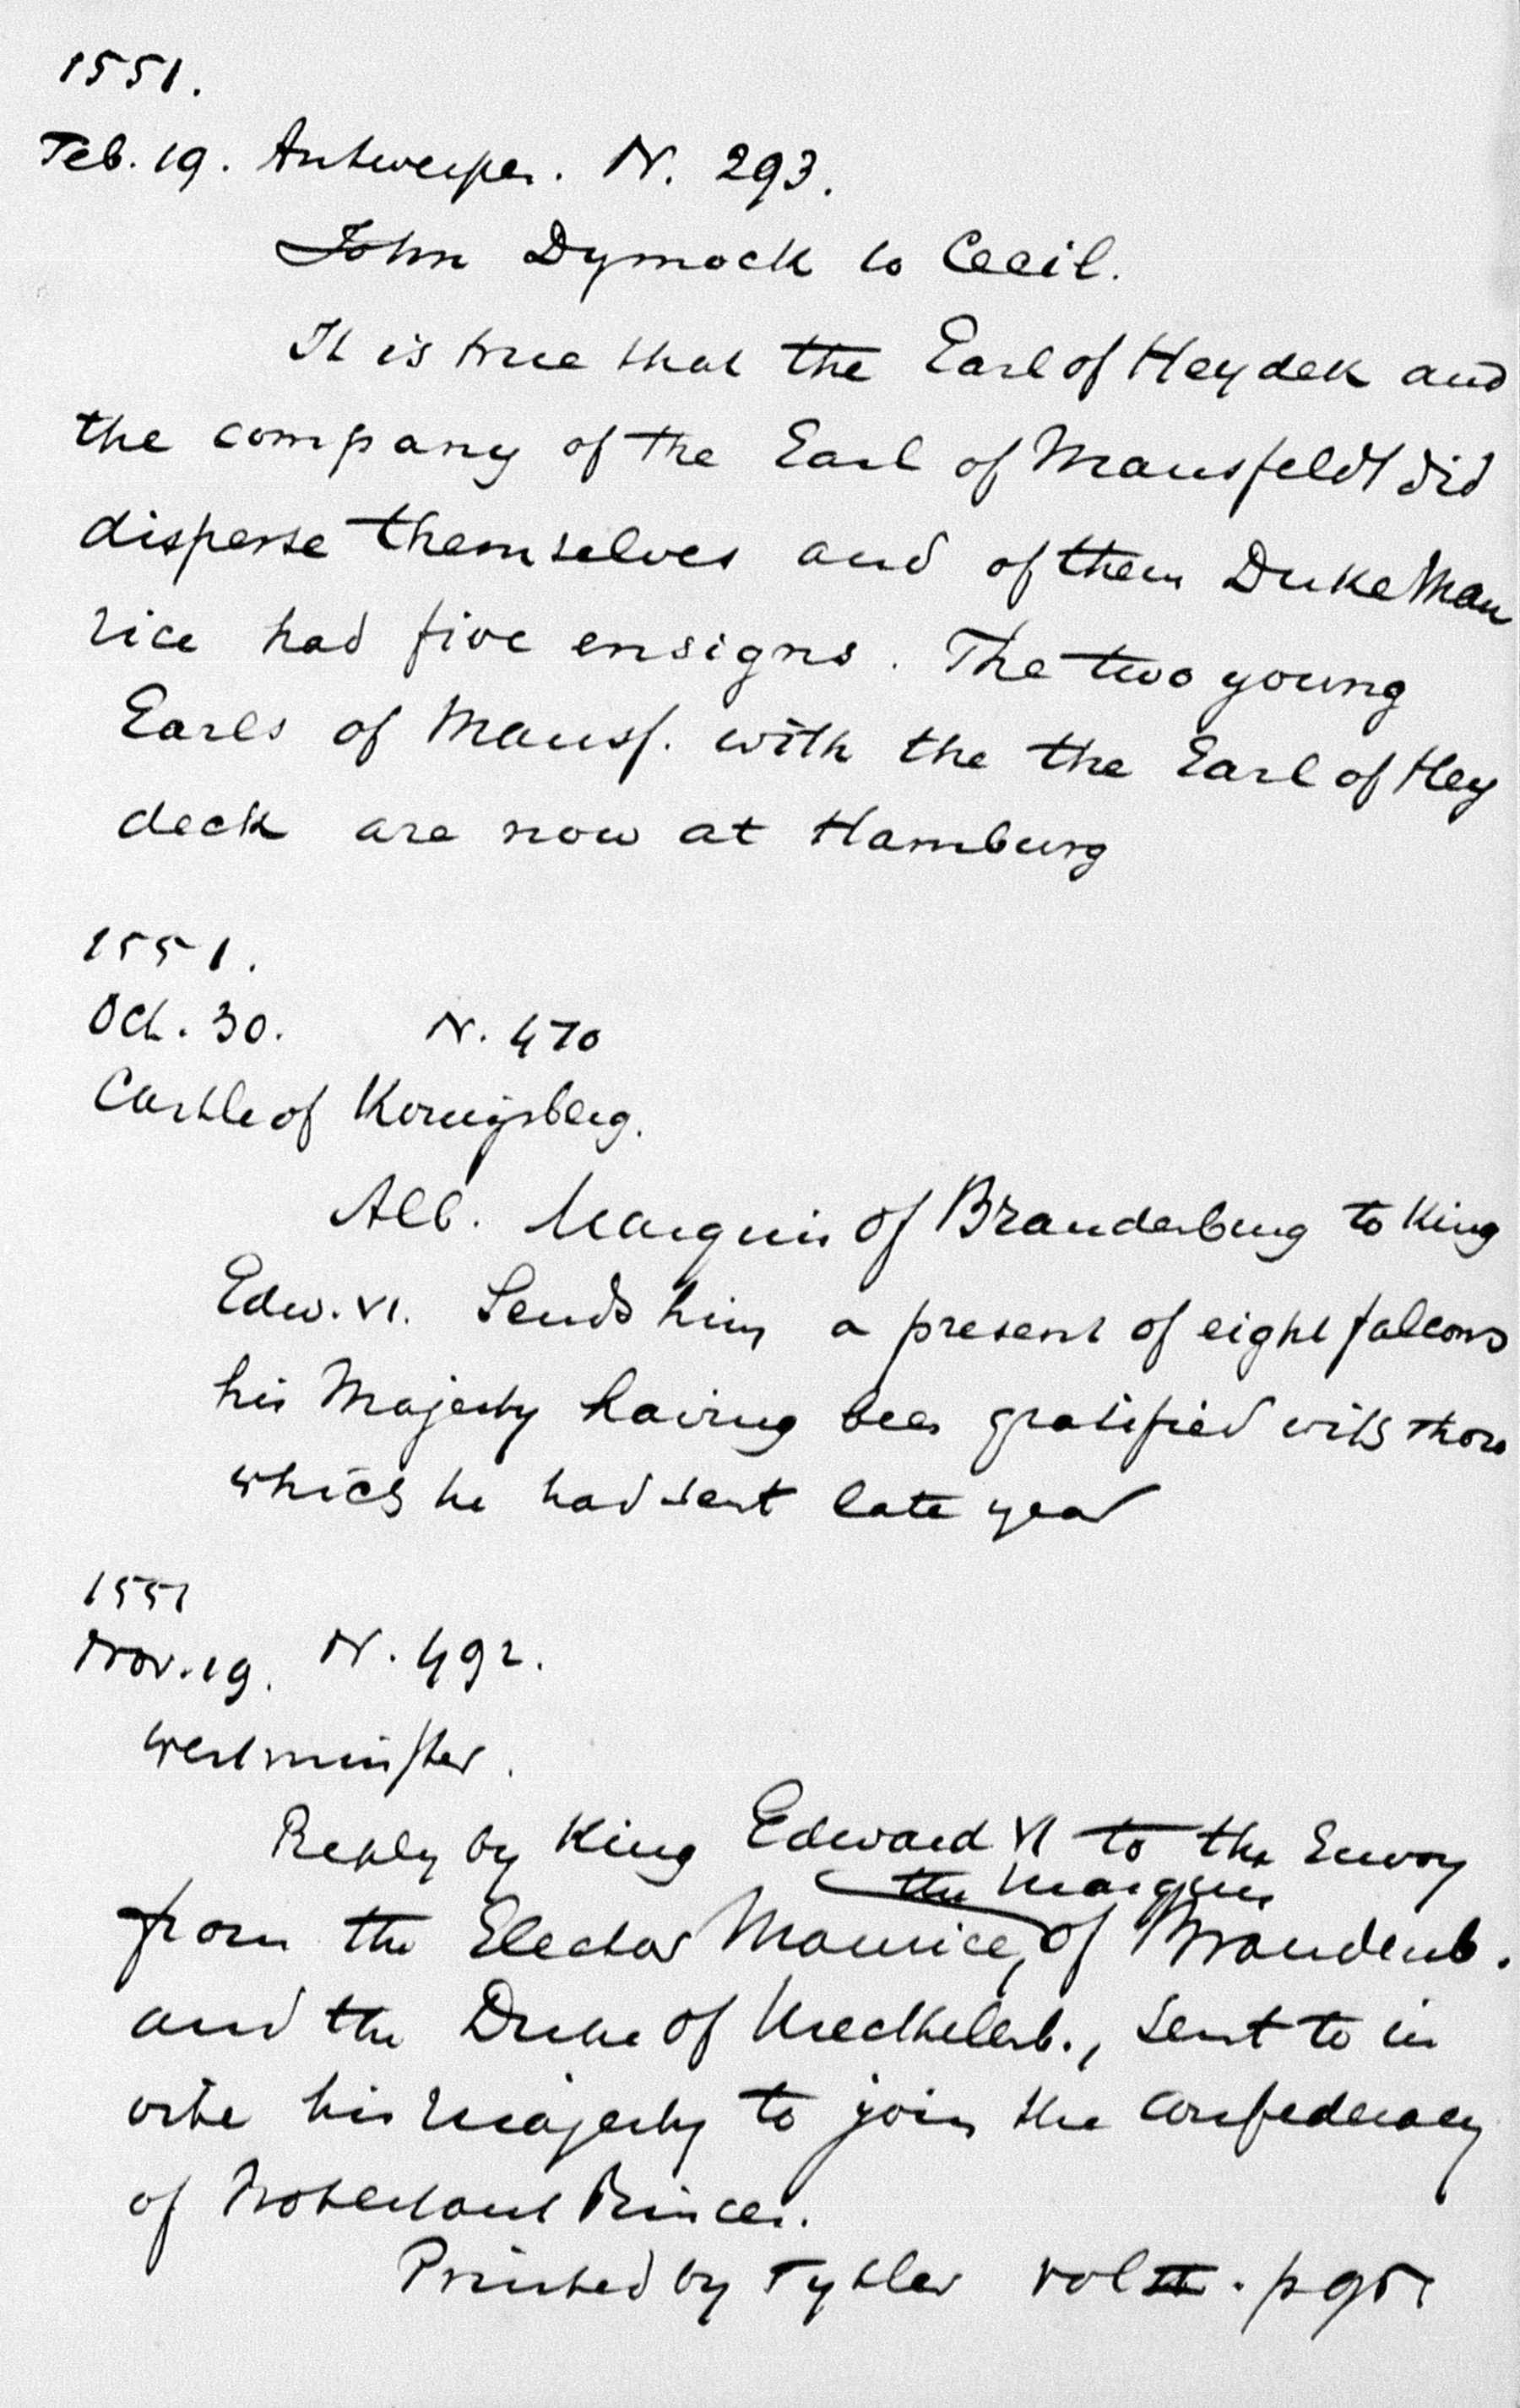 1551.
Feb. 19. Antwerpen. N. 293.
John Dymock to Cecil.
It is true that the Earl of Heydek and
the company of the Earl of Mansfeldt did
disperse themselves and of them Duke Mau
rice had five ensigns. The two young
Earls of Mansf. with the the Earl of Hey
deck are now at Hamburg
1551.
Oct. 30. N. 470
Castle of Konigsberg.
Alb. Marquis of Brandenburg to King
Edw. VI. Sends him a present of eight falcons
his Majesty having been gratified with those
which he had sent late year
1551
Nov. 19. N. 492.
Westminster.
Reply by King Edward VI to the Envoy
the Marquis
from the Elector Maurice, of Brandenb.
and the Duke of Mecklenb., sent to in
vite his Majesty to join the confederacy
of Protestant Princes.
Printed by Tytler vol II. p